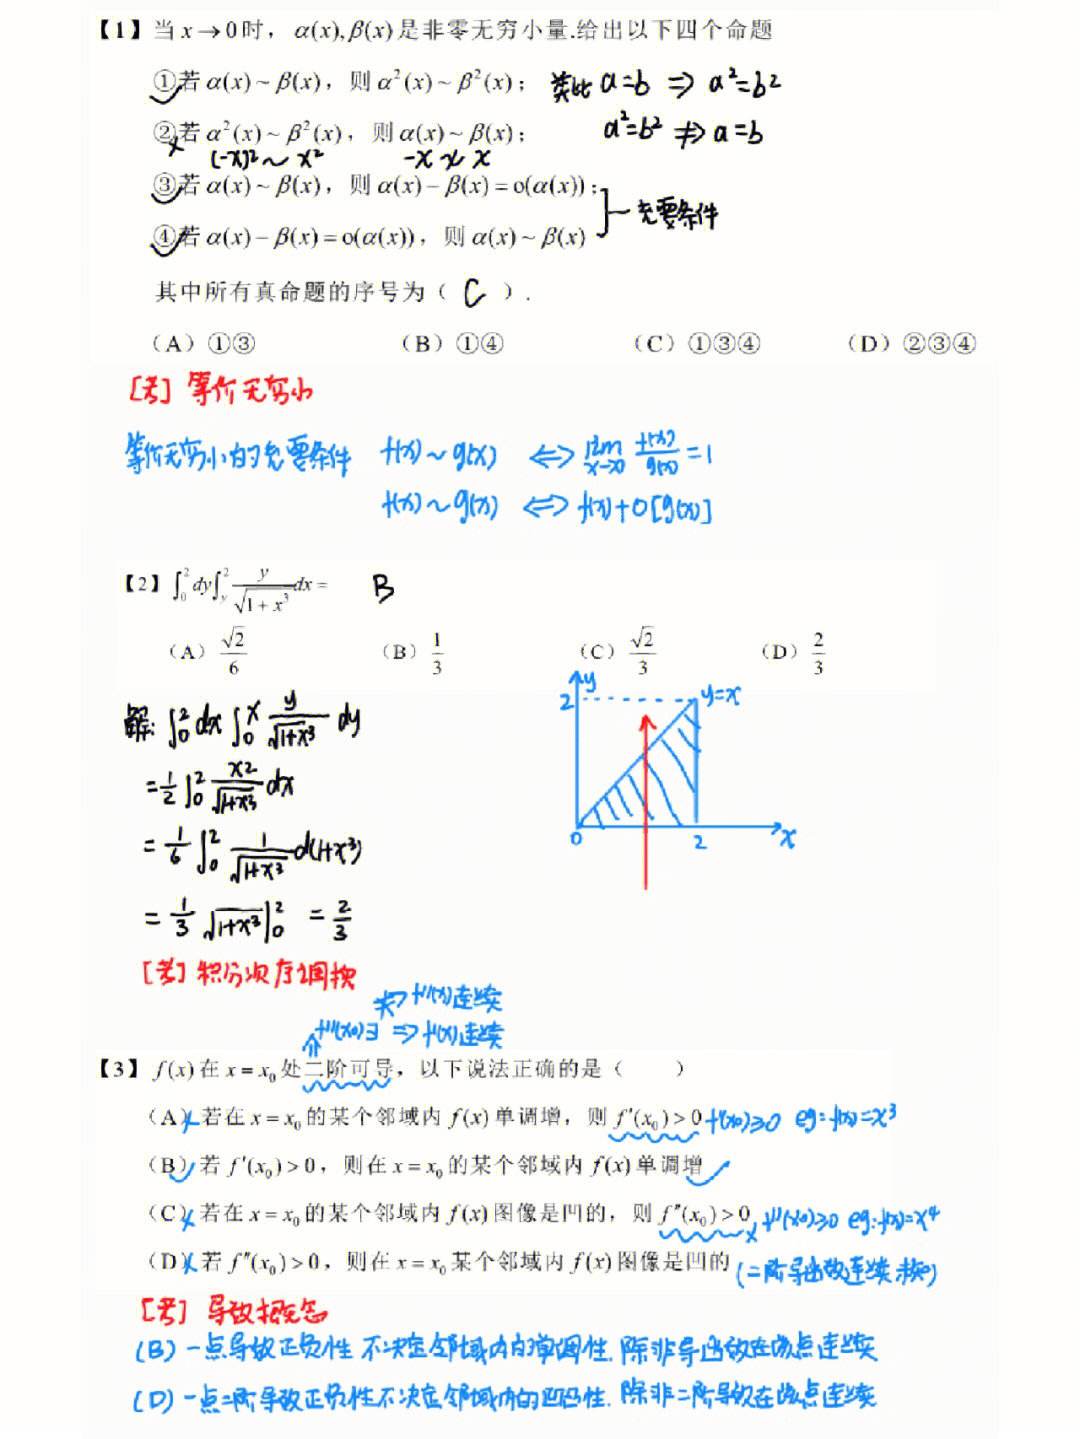 【1】当 x→0时，α(x),β(x)是非零无穷小量.给出以下四个命题
①若α(x)~β(x)，则α²(x)~β²(x)； 类比 a=b ⇒ a²=b²
②若α²(x)~β²(x)，则α(x)~β(x)； a²=b² ⇏ a=b
(-x)²~x² -x≁x
③若α(x)~β(x)，则α(x)-β(x)=o(α(x))；
充要条件
④若α(x)-β(x)=o(α(x))，则α(x)~β(x)
其中所有真命题的序号为（ C ）.
（A）①③ （B）①④ （C）①③④ （D）②③④
[考] 等价无穷小
等价无穷小的充要条件 f(x)~g(x) ⇔ lim x→x0 f(x)/g(x)=1
f(x)~g(x) ⇔ f(x)+o[g(x)]
【2】∫₀²dy∫ᵧ² y/√(1+x³) dx= B
（A）√2/6 （B）1/3 （C）√2/3 （D）2/3
y
2 y=x
解: ∫₀²dx∫₀ˣ y/√(1+x³) dy
=1/2∫₀² x²/√(1+x³) dx
=1/6∫₀² 1/√(1+x³) d(1+x³)
0 2 x
=1/3√(1+x³)|₀² =2/3
[考] 积分次序调换
⇏f''(x)连续
f''(x₀)∃ ⇒f'(x)连续
【3】f(x)在x=x₀处二阶可导，以下说法正确的是（ ）
（A）若在x=x₀的某个邻域内f(x)单调增，则f'(x₀)>0 f'(x₀)≥0 eg:f(x)=x³
（B）若f'(x₀)>0，则在x=x₀的某个邻域内f(x)单调增
（C）若在x=x₀的某个邻域内f(x)图像是凹的，则f″(x₀)>0 f''(x₀)≥0 eg:f(x)=x⁴
（D）若f″(x₀)>0，则在x=x₀某个邻域内f(x)图像是凹的 (二阶导函数连续未知)
[考] 导数概念
(B) 一点导数正负性不决定邻域内的单调性.除非导函数在该点连续
(D) 一点二阶导数正负性不决定邻域内的凹凸性.除非二阶导数在该点连续